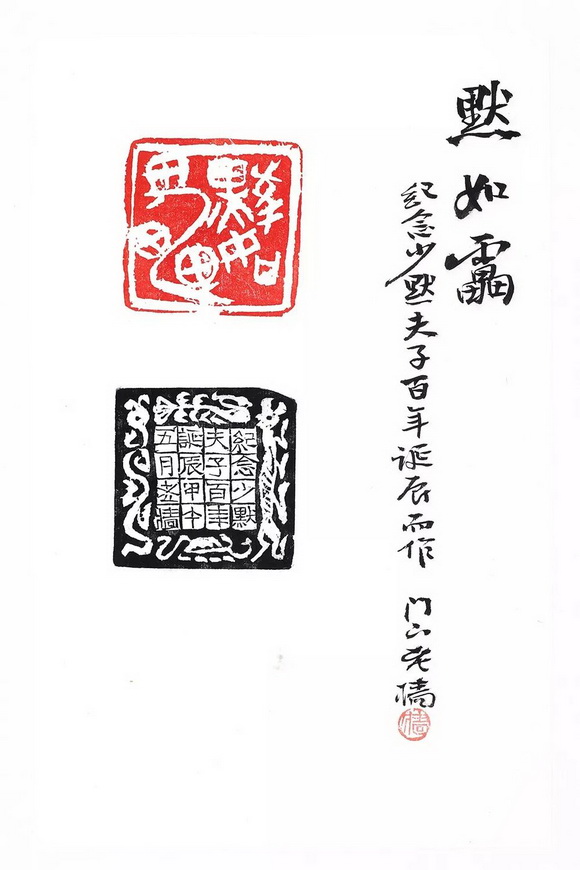 默如靁
紀念少默夫子百年诞辰而作 门下老墙
紀念少默
夫子百年
誕辰甲午
五月老墙